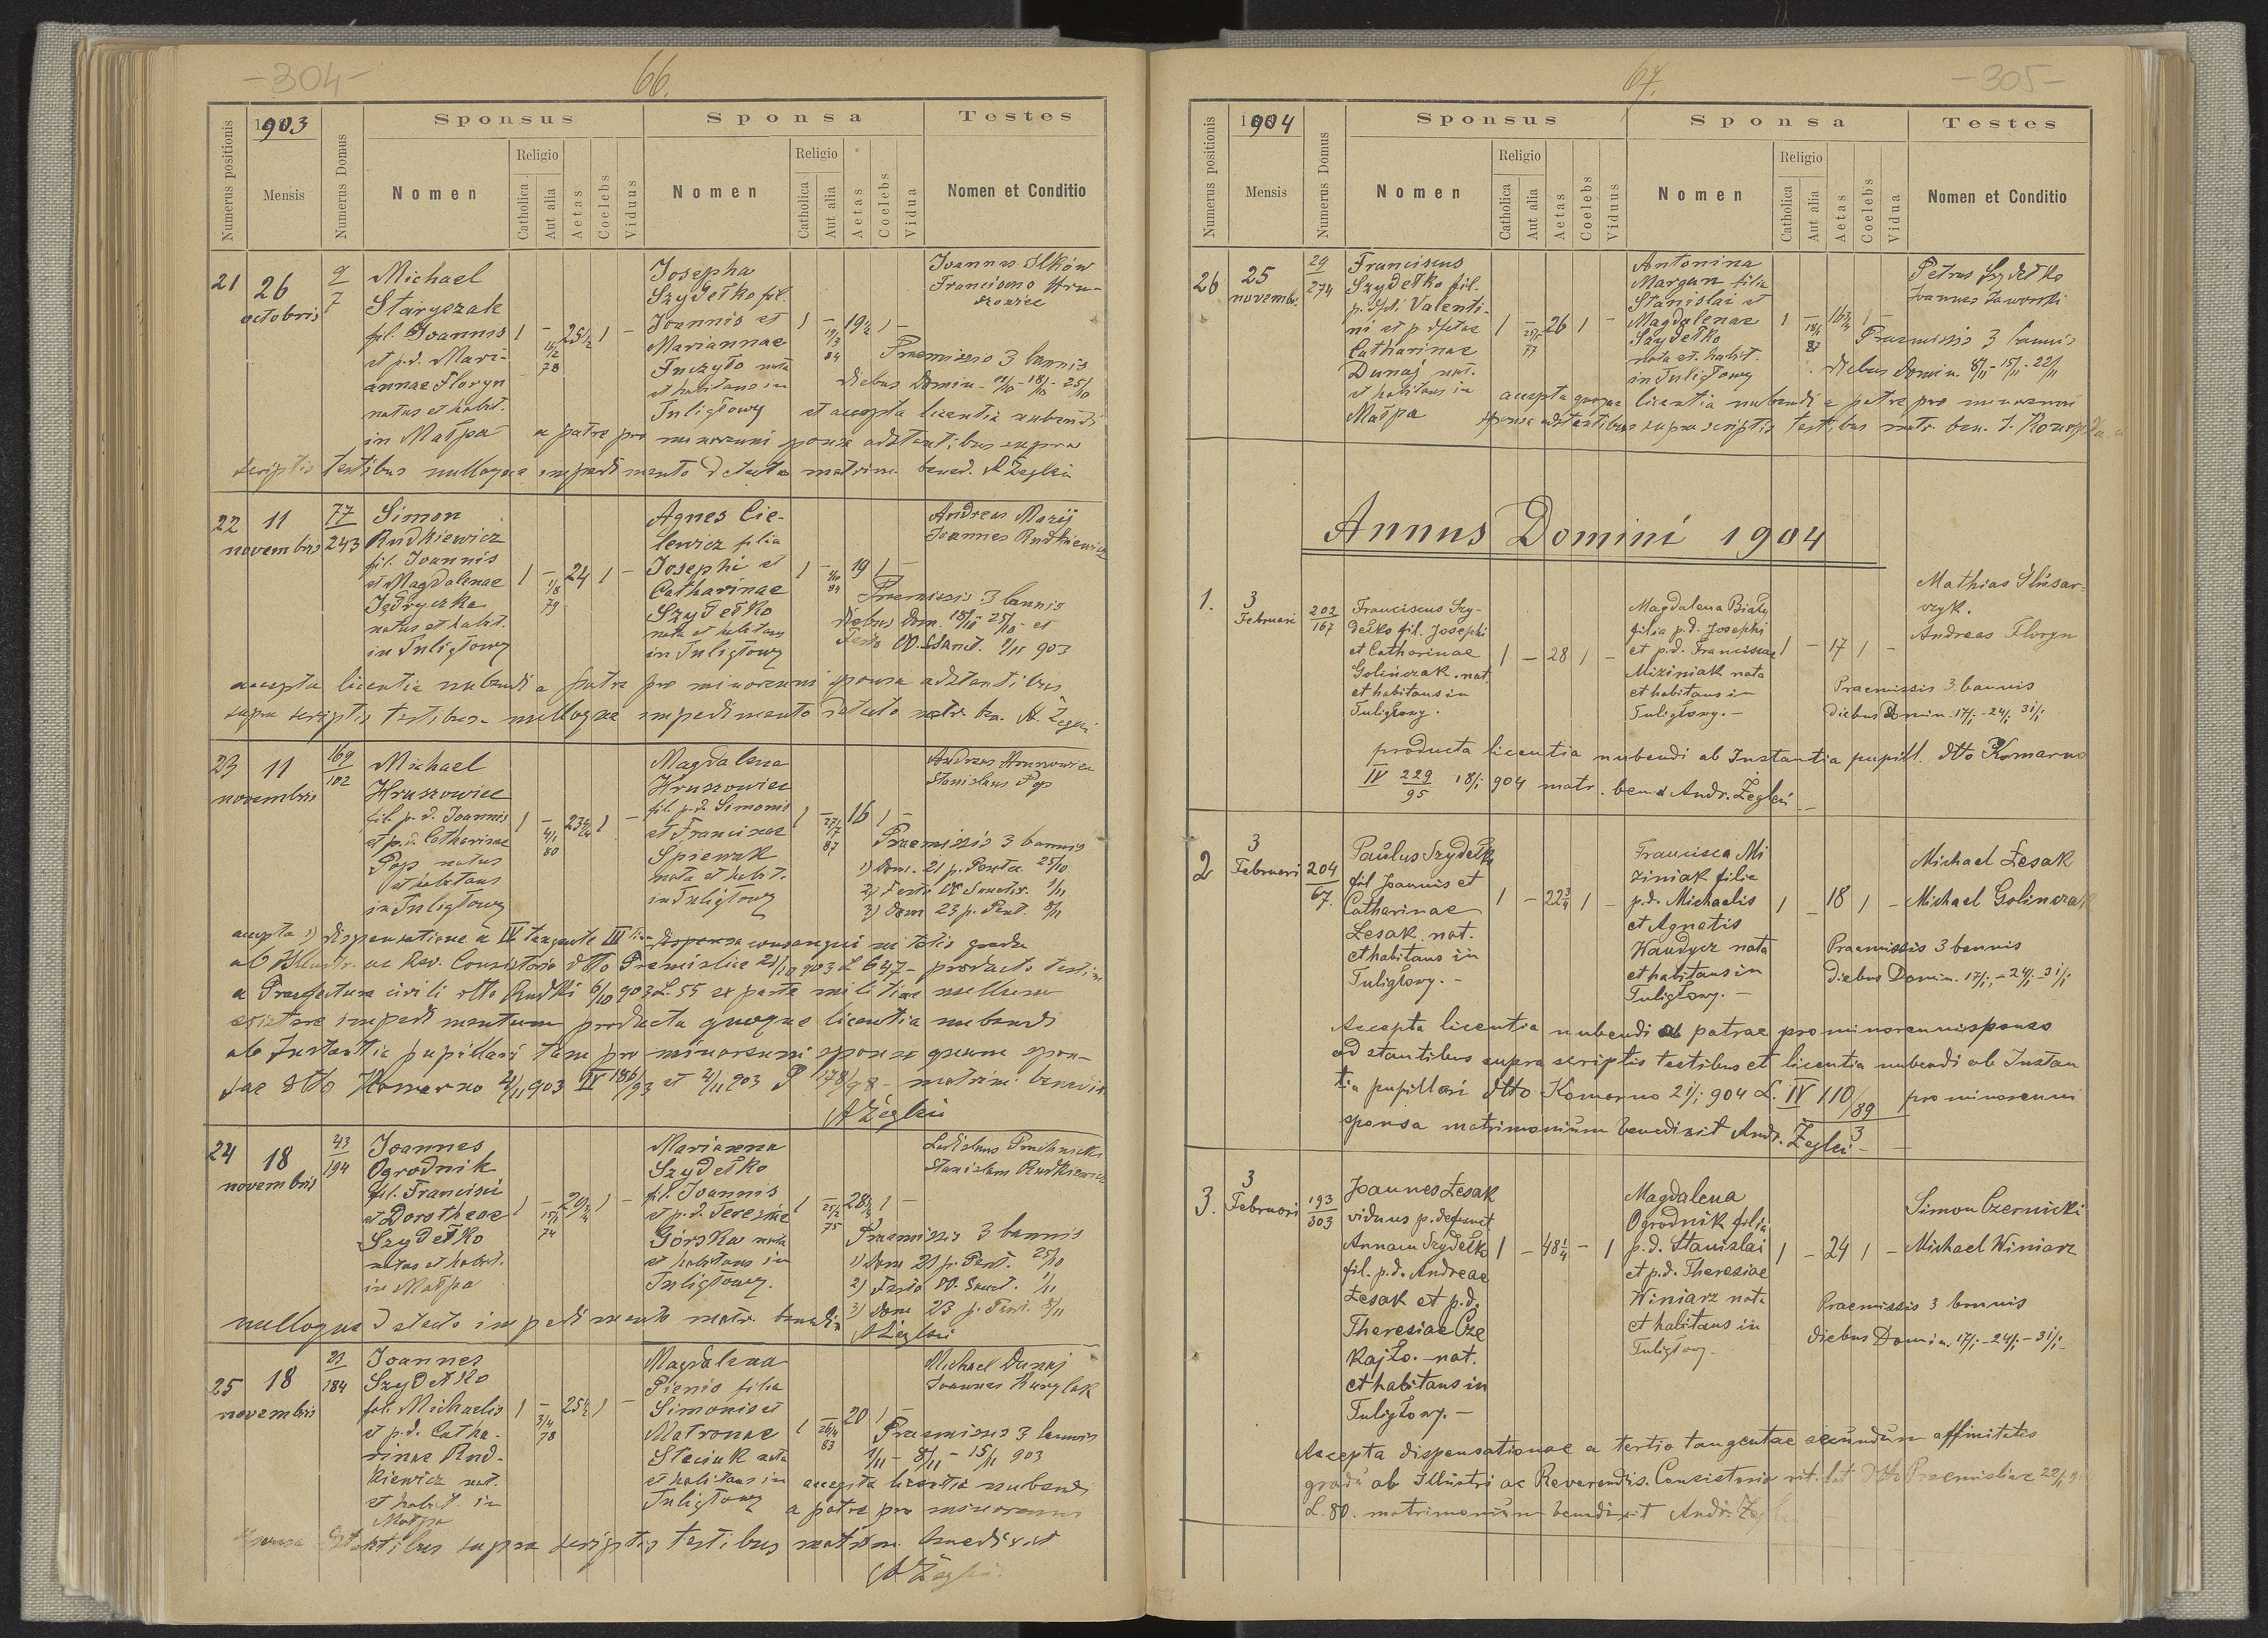 -304-
66.
1903
Numerus positionis
Mensis
Numerus Domus
Sponsus
Nomen
Religio
Catholica
Aut alia
Aetas
Coelebs
Viduus
Sponsa
Nomen
Religio
Catholica
Aut alia
Aetas
Coelebs
Vidua
Testes
Nomen et Conditio
21
26
octobris
9
7
Michael
Staryszak
fil. Joannis
et p.d. Mari-
annae Floryn
natus et habit.
in Małpa
1 - 25½ 1 -
78
Josepha
Szydełko fil.
Joannis et
Mariannae
nata
et habitans in
Tuligłowy
1 - 19½ 1 -
84
Joannes Ilków
Praemissis 3 bannis
diebus Domin. 11/10 - 18/10 - 25/10
et accepta licentia nubendi
a patre pro minorenni sponsa adstantibus supra
scriptis testibus nulloque impedimento detecto matrim. bened. A Żegleń
22
11
novembris
77
243
Simon
Rudkiewicz
fil. Joannis
et Magdalenae
Jędryczka
natus et habit.
in Tuligłowy
1 - 24 1 -
1/8
79
Agnes Cie-
lewicz filia
Josephi et
Catharinae
Szydełko
nata et habitans
in Tuligłowy
1 - 19 1 -
84
Andreas
Joannes Rudkiewicz
Praemissis 3 bannis
diebus Dom. 18/10 25/10 et
Festo OO. Sanct. 1/11 903
accepta licentia nubendi a patre pro minorenni sponsa adstantibus
supra scriptis testibus nulloque impedimento detecto matr. ben. A. Żegleń
23
11
novembris
169
102
Michael
Hruszowiec
fil. p.d. Joannis
et p.d. Catharinae
Pop natus
et habitans
in Tuligłowy
1 - 1 -
80
Magdalena
Hruszowiec
fil. p.d. Simonis
et Franciscae
Śpiewak
nata et habit.
in Tuligłowy
1 - 16 1 -
87
Andreas
Stanislaus Pop
Praemissis 3 bannis
1) Dom. 21 p. Pentec. 25/10
2) Festo OO Sanctor. 1/11
3) Dom 23 p. Pent. 8/11
accepta 1) dispensatione a IV tangente III consanguinitatis gradu
ab Illustr. ac Rev. Consistorio dtto Premisliae 21/10 903 L 647 - producto testim.
a Praefectura civili dtto Rudki 6/10 903 L. 55 ex parte militiae nullum
existere impedimentum producta quoque licentia nubendi
ab Instantia pupillari tam pro minorenni sponso quam spon-
sae dtto Komarno 903 IV 186/93 et 903 P 178/98 - matrim. benedix.
A Żegleń
24
18
novembris
43
194
Joannes
Ogrodnik
fil. Francisci
et Dorotheae
Szydełko
natus et habit.
in Małpa
1 - 29¾ 1 -
74
Marianna
Szydełko
fil. Joannis
et p.d. Teresiae
Górska nata
et habitans in
Tuligłowy.
1 - 1 -
75
Stanislaus Rudkiewicz
Praemissis 3 bannis
1) Dom 21 p. Pent. 25/10
2) Festo OO. Sanct. 1/11
3) Dom 23 p. Pent. 8/11
nulloque detecto impedimento matr. benedix
A Żegleń
25
18
novembris
21
184
Joannes
Szydełko
fil. Michaelis
et p.d. Catha-
rinae Rud-
kiewicz nat.
et habit. in
Małpa
1 - 25½ 1 -
3/4
78
Magdalena
Pienio filia
Simonis et
Matronae
Steciuk nata
et habitans in
Tuligłowy
1 - 20 1 -
83
Michael Dunaj
Joannes Kurylak
Praemissis 3 bannis
1/11 - 8/11 - 15/11 903
accepta licentia nubendi
a patre pro minorenni
sponsa adstantibus supra scriptis testibus matrim. benedixit
A Żegleń.
67.
-305-
1904
Numerus positionis
Mensis
Numerus Domus
Sponsus
Nomen
Religio
Catholica
Aut alia
Aetas
Coelebs
Viduus
Sponsa
Nomen
Religio
Catholica
Aut alia
Aetas
Coelebs
Vidua
Testes
Nomen et Conditio
26
25
novembr.
29
274
Franciscus
Szydełko fil.
Valenti-
ni et
Catharinae
Dunaj nat.
et habitans in
Małpa
1 - 26 1 -
77
Antonina
Margan filia
Stanislai et
Magdalenae
Szydełko
nata et habit.
in Tuligłowy
1 - 16¼ 1 -
87
Petrus Szydełko
Joannes Jaworski
Praemissis 3 bannis
diebus Domin. 8/11 - 15/11 - 22/11
accepta quoque licentia nubendi a patre pro minorenni
sponsa adstantibus supra scriptis testibus matr. ben. J.
Annus Domini 1904
1.
3
Februari
202
167
Franciscus Szy-
dełko fil. Josephi
et Catharinae
Golińczak. nat.
et habitans in
Tuligłowy.
1 - 28 1 -
Magdalena Biały
filia p.d. Josephi
et p.d. Franciscae
Miziniak nata
et habitans in
Tuligłowy. -
1 - 17 1 -
Mathias Ślusar-
czyk.
Andreas Floryn
Praemissis 3 bannis
diebus Domin. 17/1 - 24/1 31/1
producta licentia nubendi ab Instantia pupill. dtto Komarno
IV 229/95 18/1 904 matr. bened Andr. Żegleń -
2
3
Februari
204
67.
Paulus Szydełko
fil Joannis et
Catharinae
Lesak nat.
et habitans in
Tuligłowy. -
1 - 22¾ 1 -
Francisca Mi
ziniak filia
p.d. Michaelis
et Agnetis
Haudycz nata
et habitans in
Tuligłowy. -
1 - 18 1 -
Michael Lesak
Michael Golinczak
Praemissis 3 bannis
diebus Domin. 17/1 - 24/1 - 31/1
Accepta licentia nubendi ab patrae pro minorenni sponso
ad stantibus supra scriptis testibus et licentia nubendi ab Instan
tia pupillari dtto Komarno 21/1 904 L. IV 110/89 pro minorenni
3
sponsa matrimonium benedixit Andr. Żegleń -
3.
3
Februari
193
303
Joannes Lesak
viduus p. defunct
Annam Szydełko
fil. p.d. Andreae
Lesak et p.d.
Theresiae Cze
kajło. - nat.
et habitans in
Tuligłowy. -
1 - 48¼ - 1
Magdalena
Ogrodnik filia
p.d. Stanislai
et p.d. Theresiae
Winiarz nata
et habitans in
Tuligłowy -
1 - 24 1 -
Simon Czernicki
Michael Winiarz
Praemissis 3 bannis
diebus Domin. 17/1 - 24/1 - 31/1 -
Accepta dispensationae a tertio tangentae secundum affinitatis
gradu ab Illustri ac Reverendis. Consistorio rit. lat dtto Praemisliae 22/1
L. 80. matrimonium benedixit Andr. Żegleń